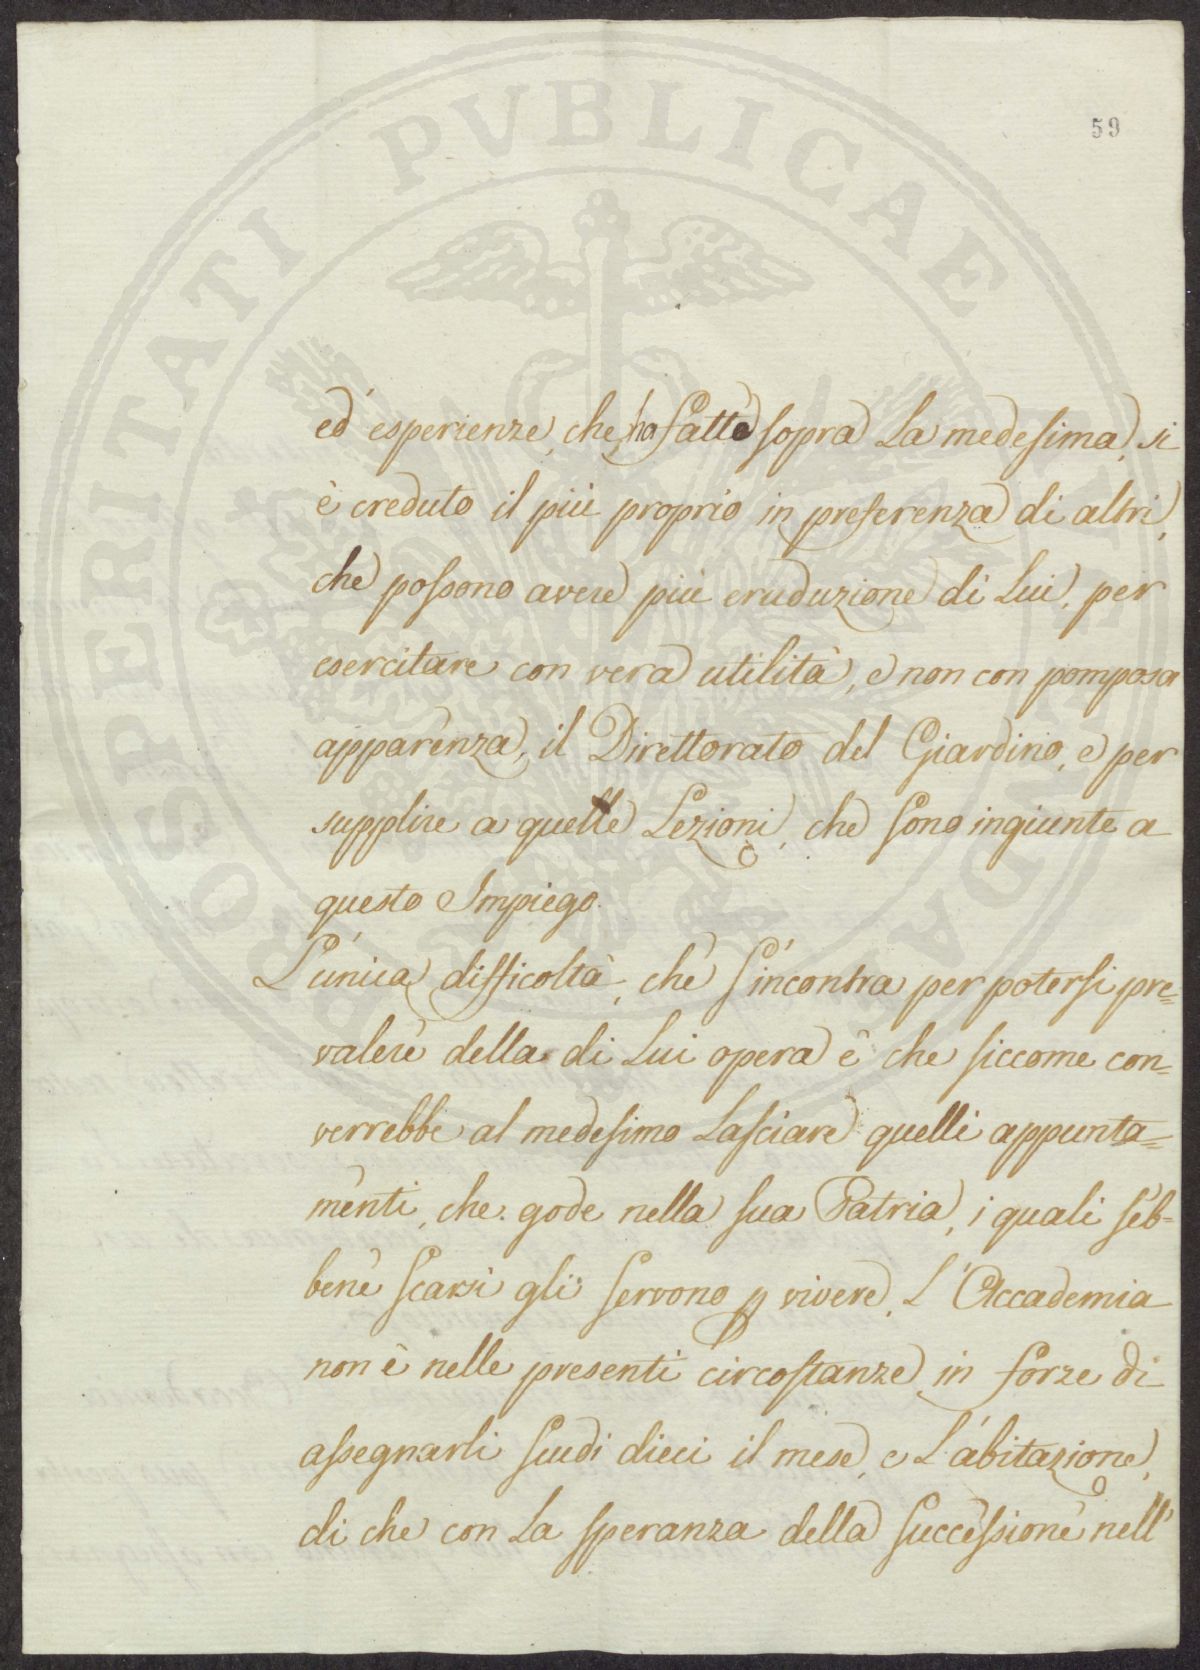 PROSPERITATI PVBLICAE AVGENDAE
59
ed' esperienze, che ha fatte sopra la medesima, si
è creduto il più proprio in preferenza di altri,
che possono avere più eruduzione di Lui, per
esercitare con vera utilità, e non con pomposa
apparenza, il Direttorato del Giardino, e per
supplire a quelle Lezioni, che sono ingiunte a
questo Impiego.
L'única difficoltà, che s'incontra per potersi pre=
valere della di Lui opera è che siccome con=
verrebbe al medesimo lasciare quelli appunta=
menti, che gode nella sua Patria, i quali seb=
bene scarsi gli servono p vivere, L'Accademia
non è nelle presenti circostanze in forze di
assegnarli scudi dieci il mese, e L'abitazione,
di che con la speranza della successione nell'